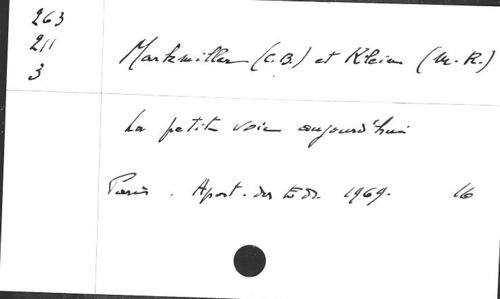 263
211
3
Markmiller (C.B.) et Klein (M.R.)
La petite voie aujourd'hui
Paris. Apost. des Ed. 1969. 16